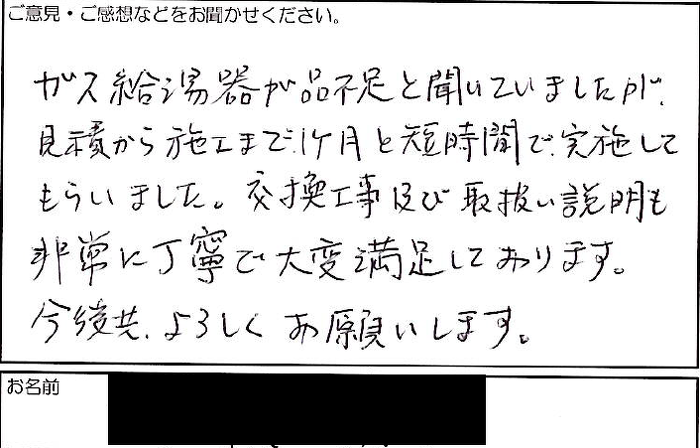 ご意見・ご感想などをお聞かせください。
ガス給湯器が品不足と聞いていましたが、
見積から施工まで、1ケ月と短時間で、実施して
もらいました。交換工事及び取扱い説明も
非常に丁寧で大変満足しております。
今後共、よろしくお願いします。
お名前